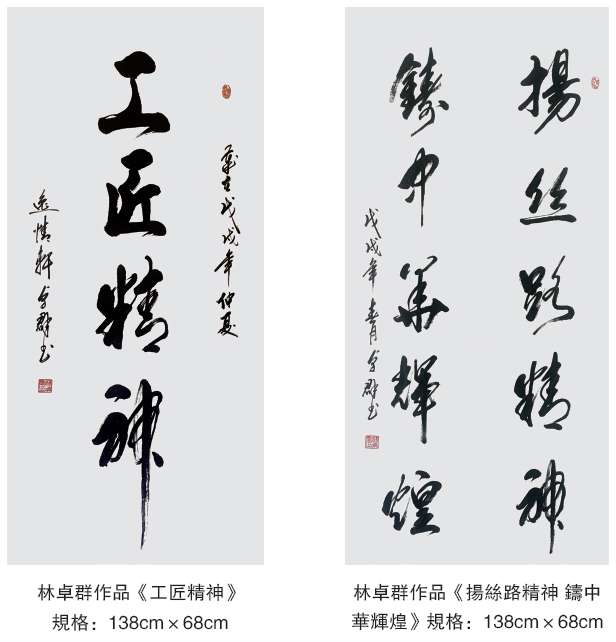 歲在戊戌年仲夏
工匠精神
逸情軒卓群书
揚丝路精神
鑄中華輝煌
戊戌年春月卓群书
林卓群作品《工匠精神》
規格：138cm×68cm
林卓群作品《揚絲路精神 鑄中
華輝煌》規格：138cm×68cm